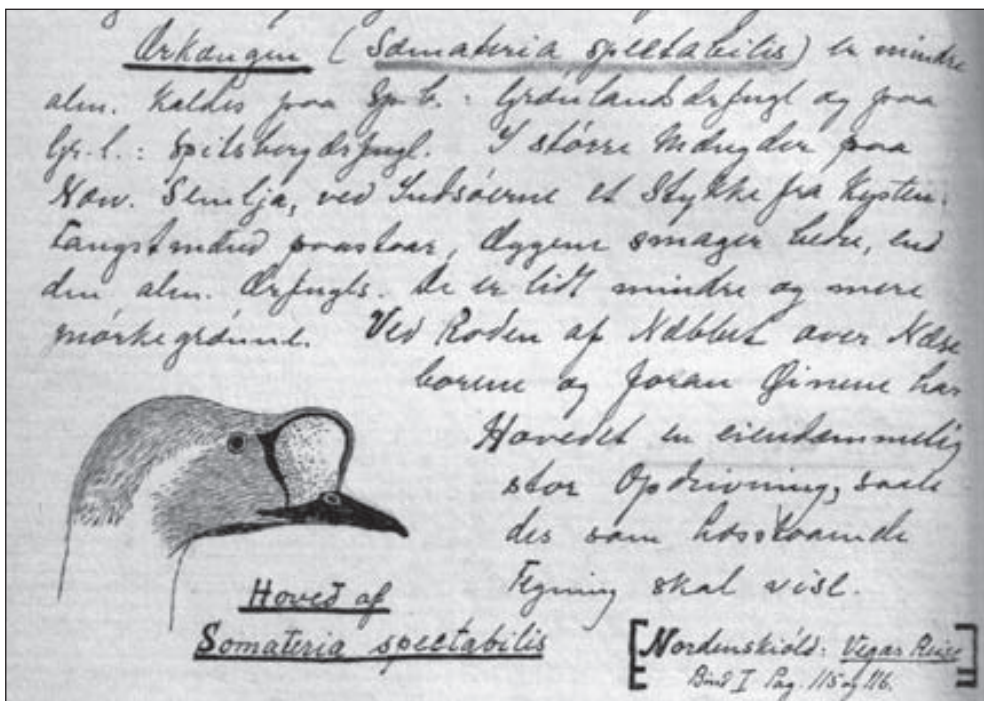 Ærkongen (Somateria spectabilis) er mindre
alm. Kaldes paa Sp.b.: Grønlandsærfugl og paa
Gr.l.: Spitsbergærfugl. I större Mængder paa
Now. Semlja, ved Indsöerne et Stykke fra Kysten.
Fangstmænd paastaar, Æggene smager bedre, end
den alm. Ærfugls. De er lidt mindre og mere
mörkegrönne. Ved Roden af Næbbet over Næse
borene og foran Öinene har
Hovedet en eiendommelig
stor Opdrivning, saale
des som hosstaaende
Tegning skal vise.
Hoved af
Somateria spectabilis
[Nordenskiöld: Vegas Reise
Bind I Pag. 115 og 116.]